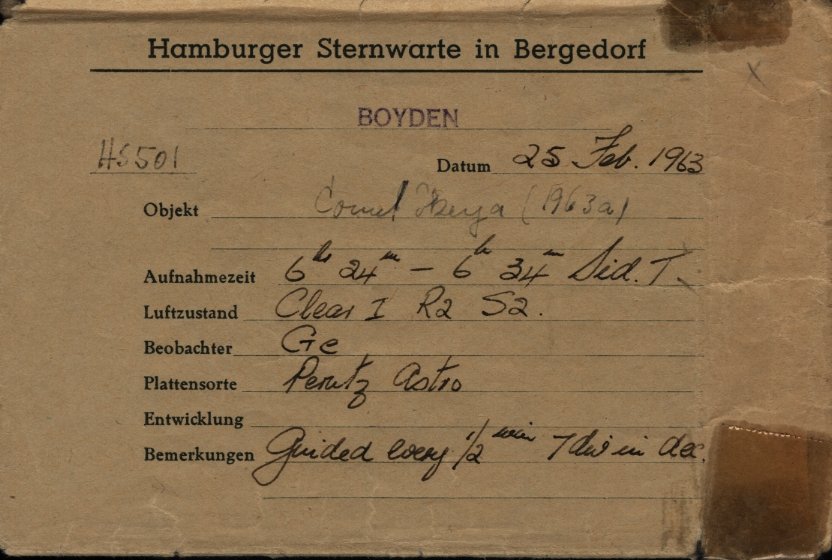 Hamburger Sternwarte in Bergedorf
BOYDEN
HS501
Datum 25 Feb. 1963
Objekt Comet Ikeya (1963a)
Aufnahmezeit 6 hs 24 m – 6 h 34 m Sid. T.
Luftzustand Clear I R2 S2.
Beobachter Ge
Plattensorte Perutz Astro
Entwicklung
Bemerkungen Guided every 1/2 min 7 div in dec.